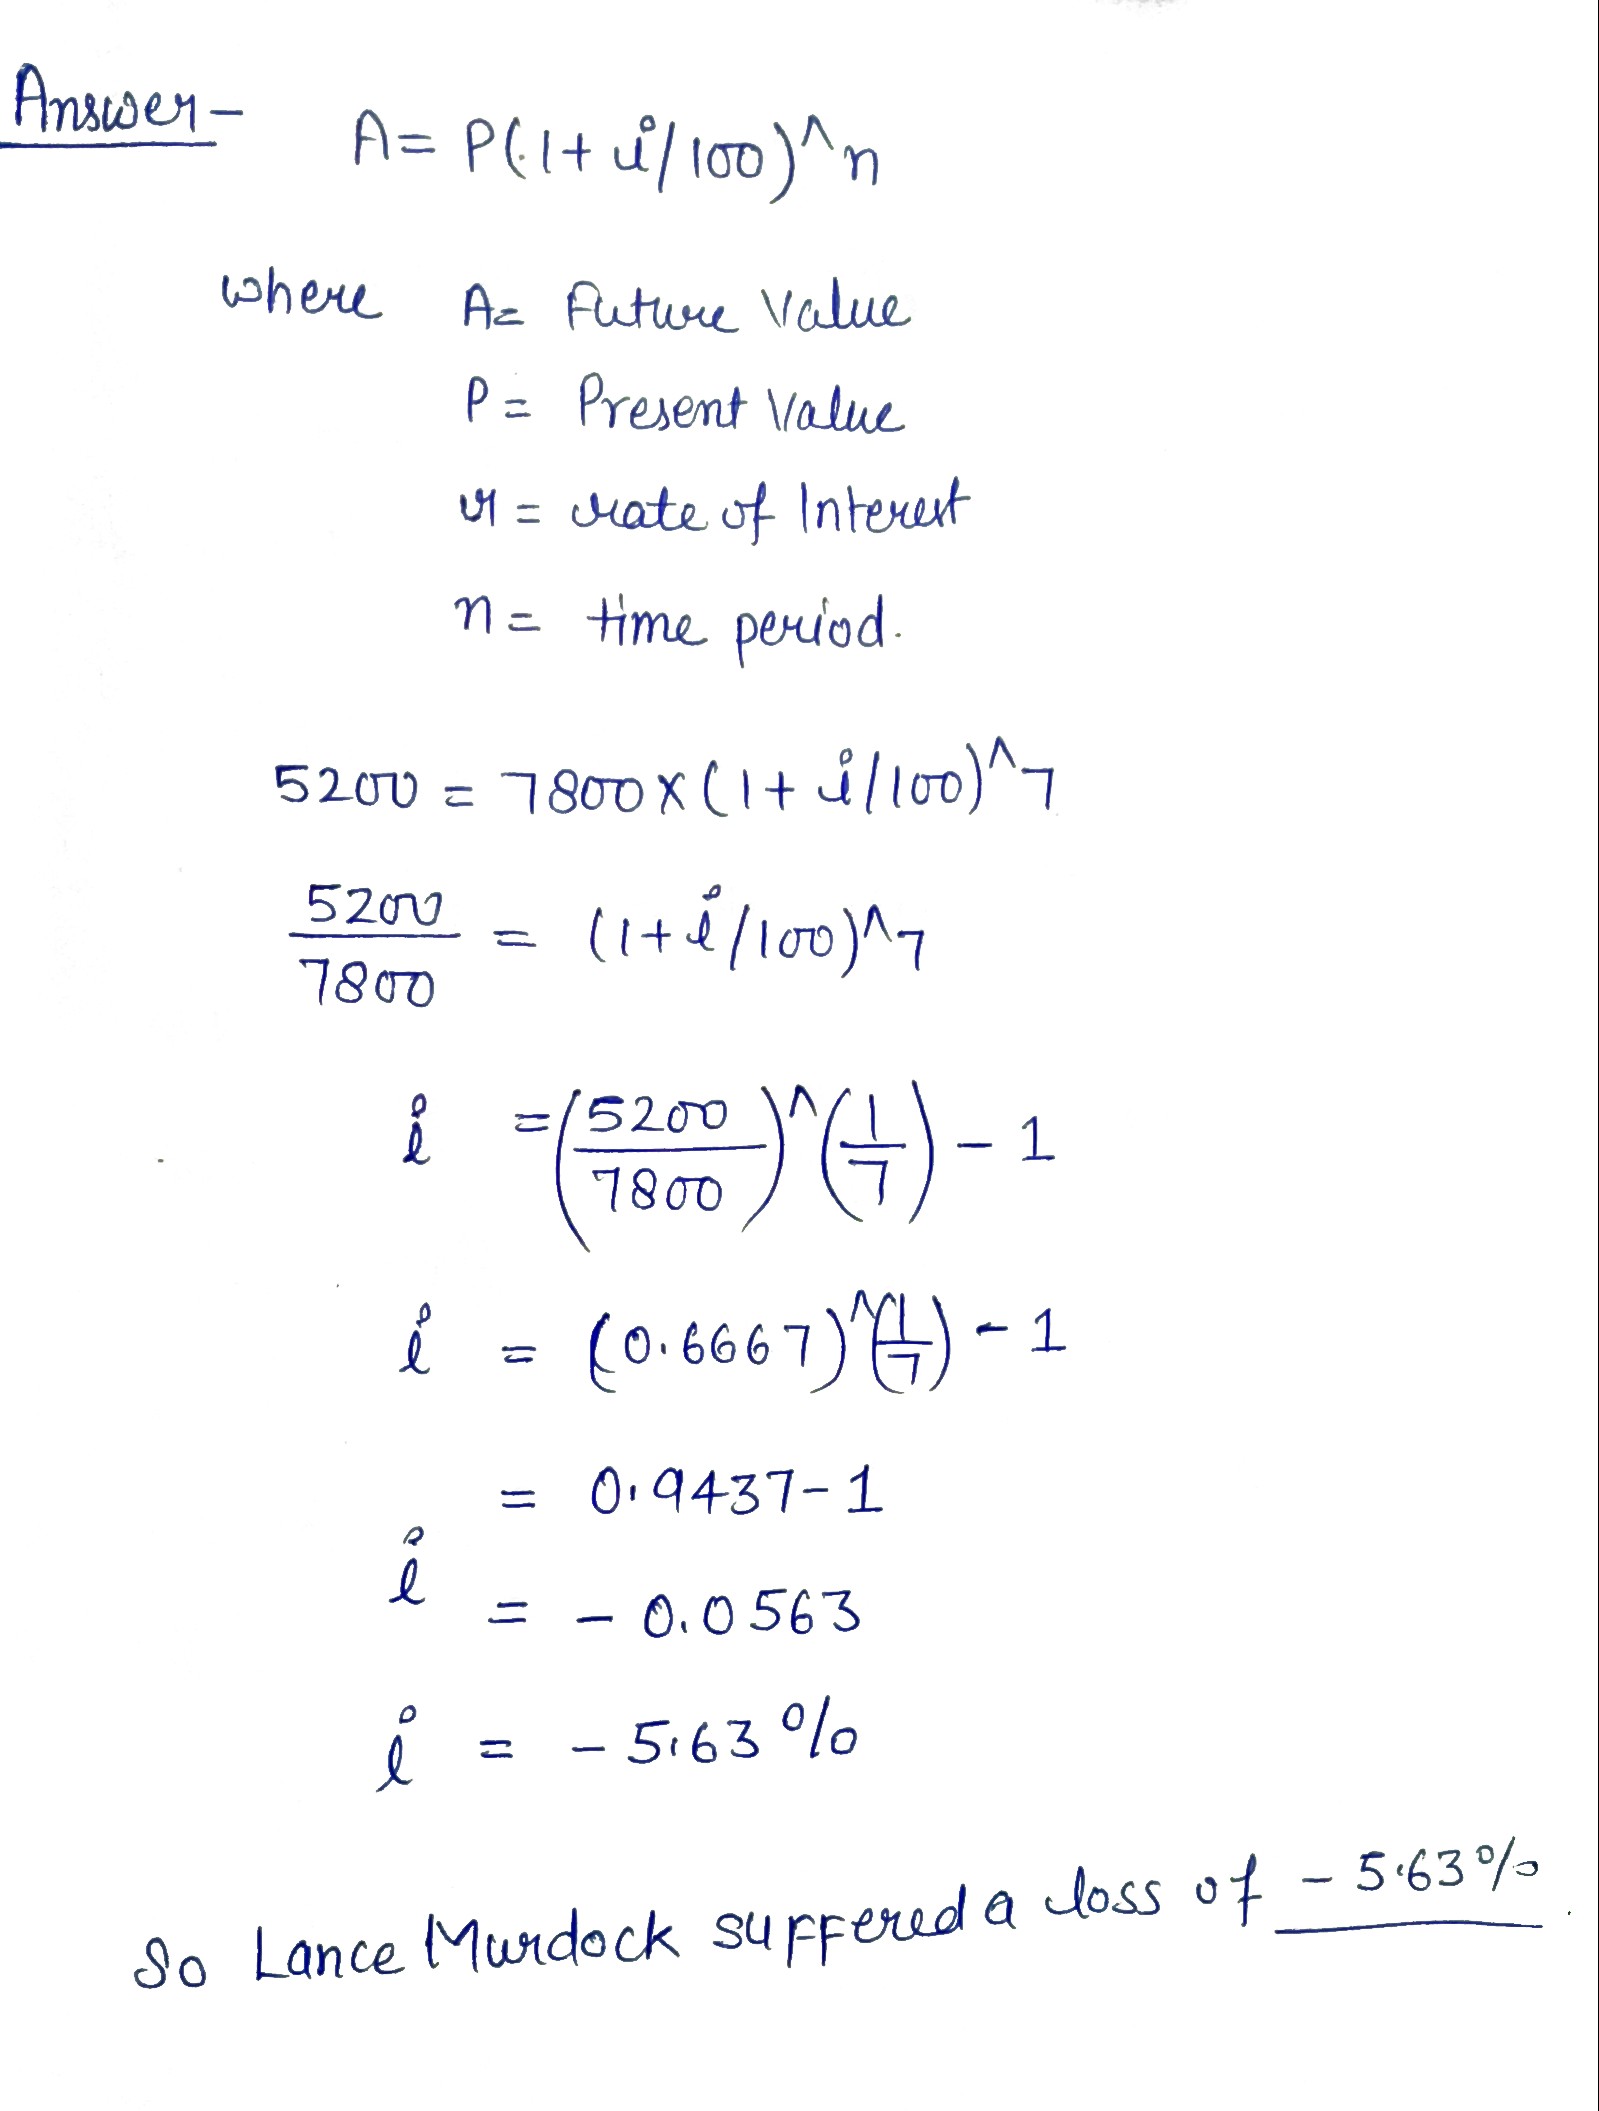 Answer - A = P(1 + i/100)^n
where A = Future Value
P = Present Value
r = rate of Interest
n = time period.
5200 = 7800 x (1 + i/100)^7
5200/7800 = (1 + i/100)^7
i = (5200/7800)^(1/7) - 1
i = (0.6667)^(1/7) - 1
= 0.9437 - 1
i = - 0.0563
i = - 5.63 %
So Lance Murdock suffered a loss of - 5.63 %